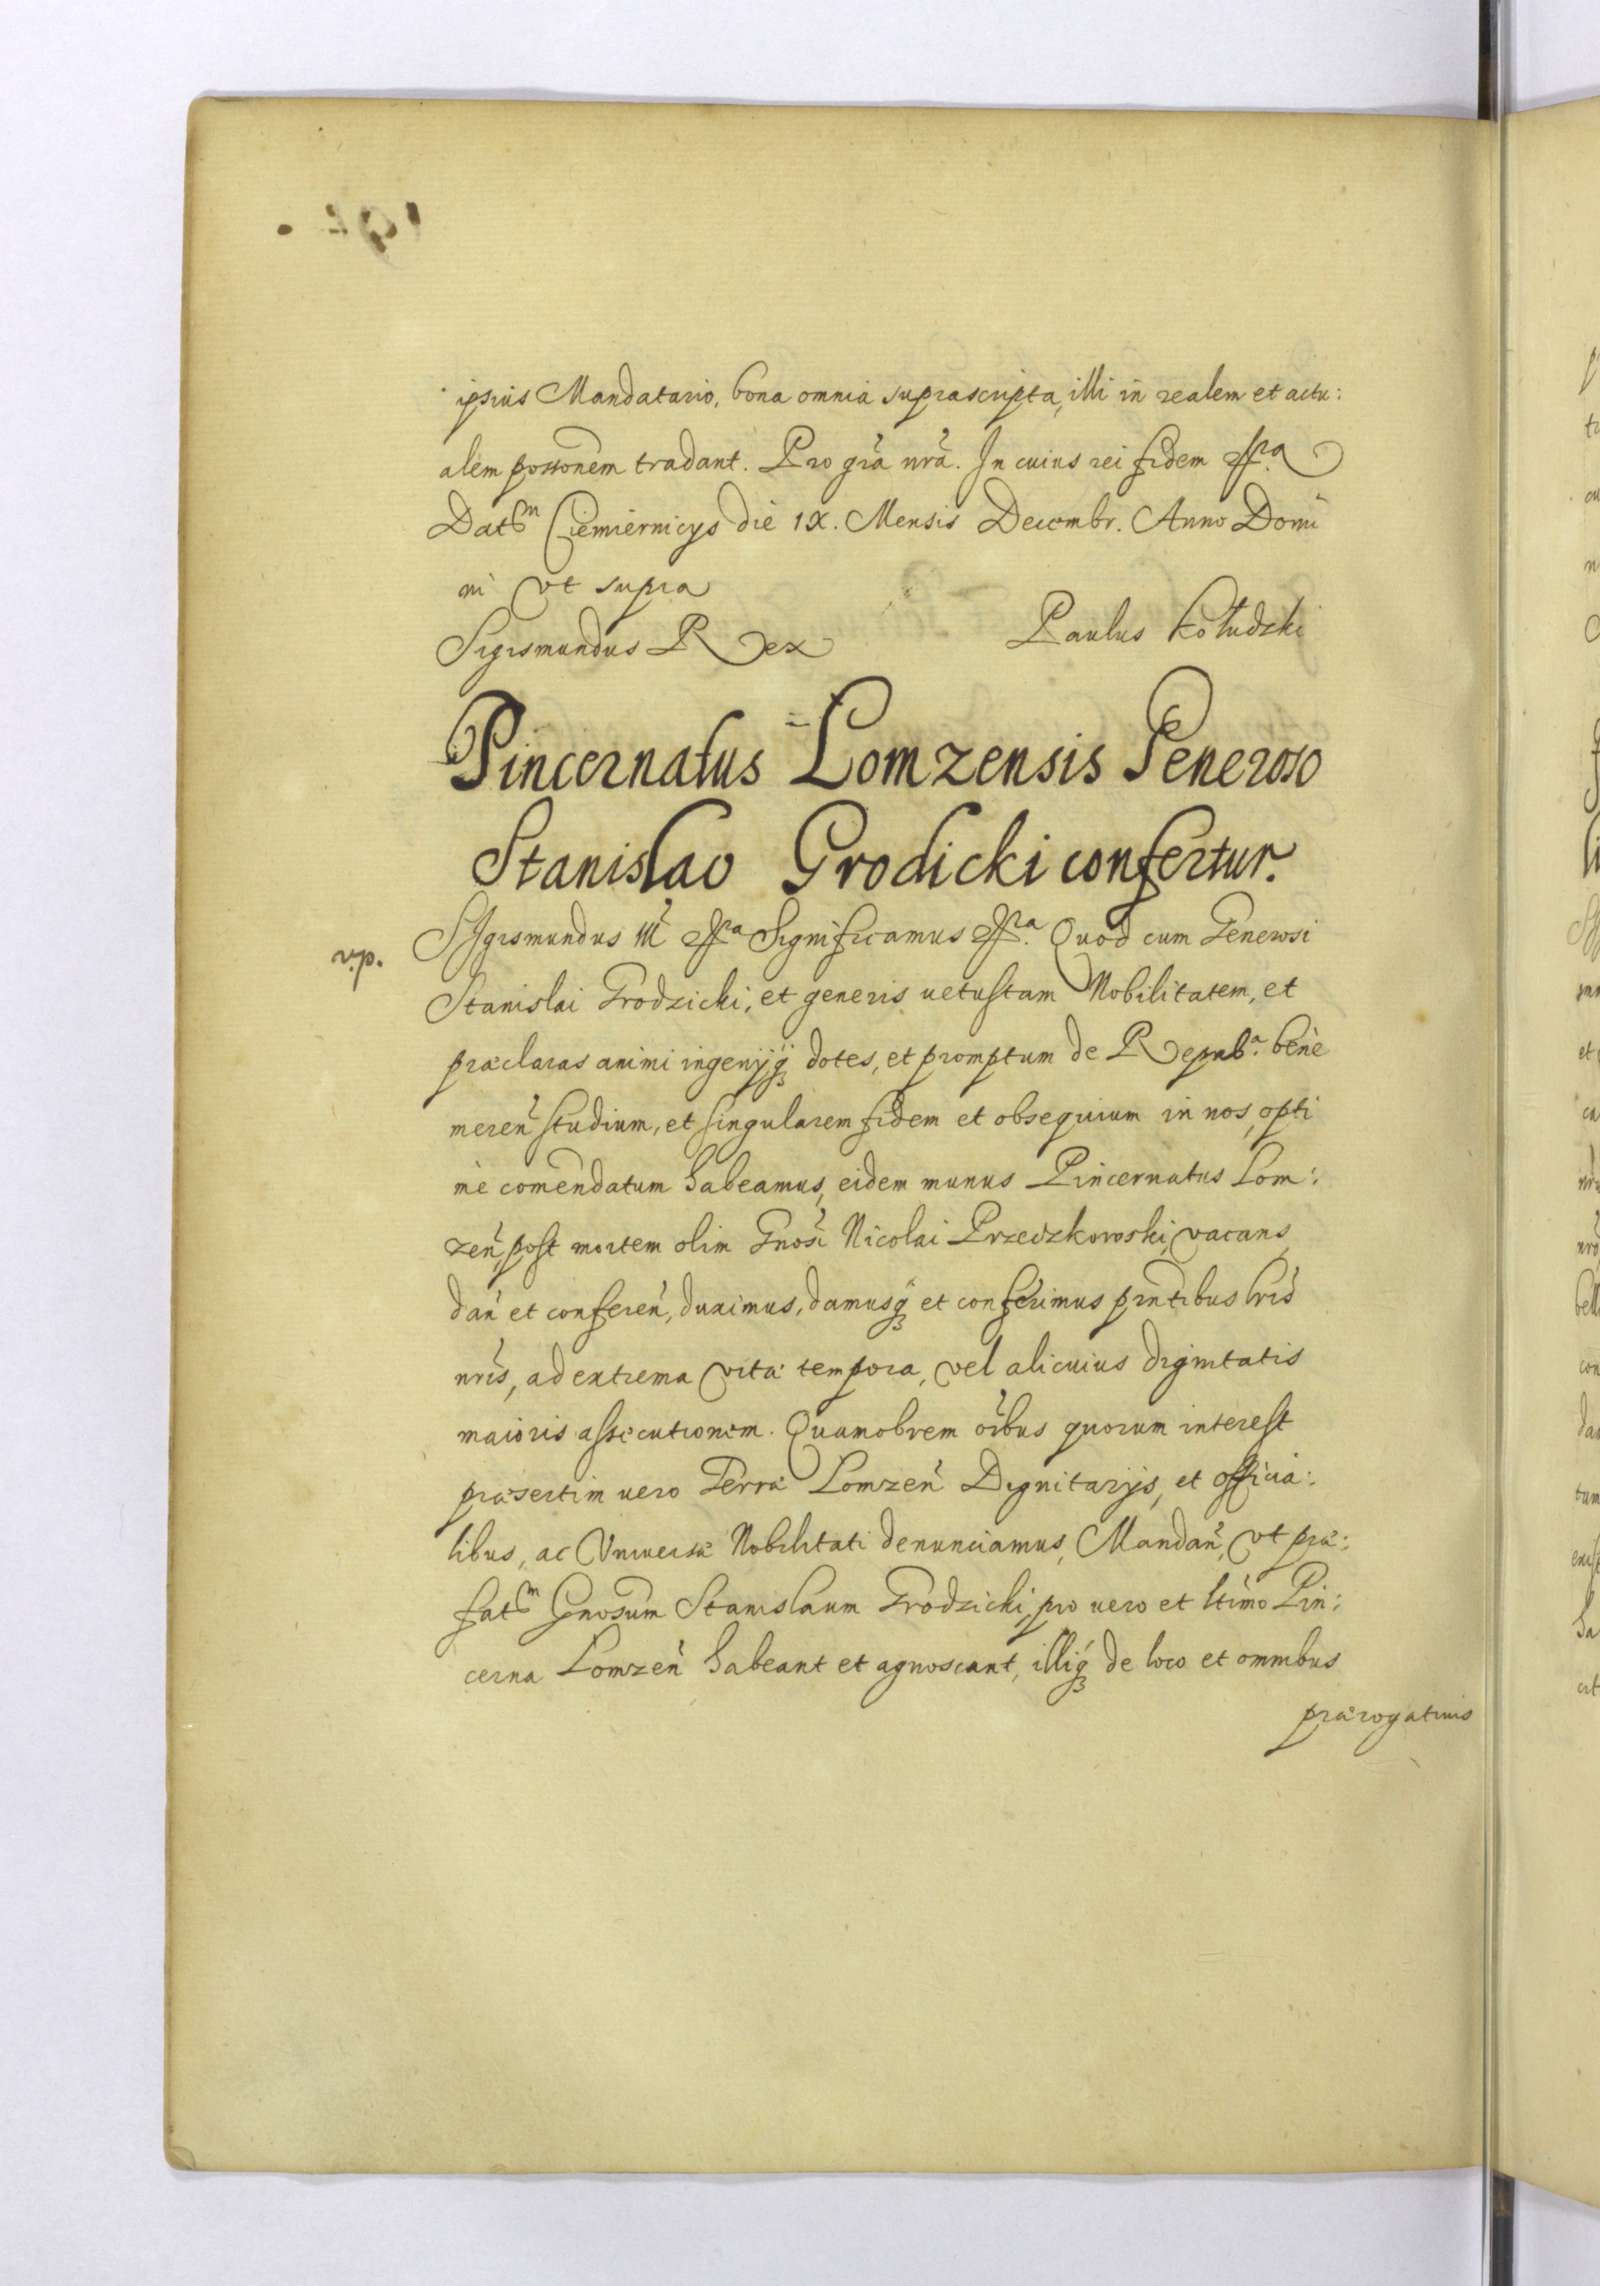 ipsius Mandatario, bona omnia suprascripta, illi in realem et actu:
alem possonem tradant. Pro gra nra. In cuius rei fidem
Datum Ciemiernicys die IX. Mensis Decembr. Anno Domi
ni vt supra
Sigismundus Rex
Paulus Kołudzki
Pincernatus Lomzensis Generoso
Stanislao Grodicki confertur.
v.p.
SIgismundus III Significamus Quod cum Generosi
Stanislai Grodzicki, et generis uetustam Nobilitatem, et
præclaras animi ingenijq dotes, et promptum de Repub.ª bene
meren studium, et singularem fidem et obsequium in nos, opti
me comendatum habeamus, eidem munus Pincernatus Lom:
zen, post mortem olim Gnosi Nicolai vacans,
dan et conferen, duximus, damusq et conferimus pntibus lris
nris, ad extrema vitæ tempora, vel alicuius dignitatis
maioris assecutionem. Quamobrem oibus quorum interest
præsertim uero Terræ Lomzen Dignitarijs, et officia:
libus, ac Vniuersæ Nobilitati denunciamus, Mandan, vt præ:
fatum Gnosum Stanislaum Grodzicki, pro uero et ltimo Pin:
cerna Lomzen habeant et agnoscant, illiq de loco et omnibus
prærogatiuis